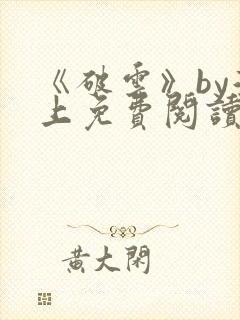 《破雲》by
上免費閱讀
黃大閑